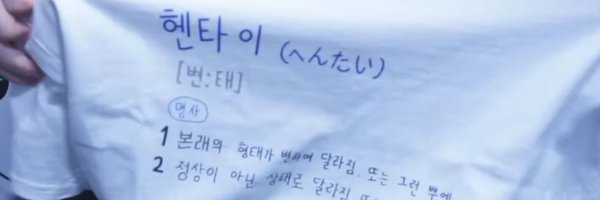 헨타이 (へんたい)
[변:태]
명사
1 본래의 형태가 변하여 달라짐. 또는 그런
2 정상이 아닌 상태로 달라짐